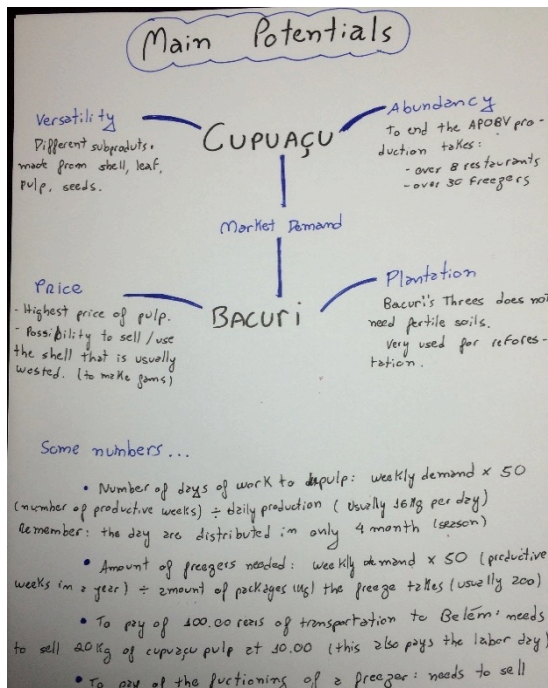 Main Potentials
Versatility
Different subproduts.
made from shell, leaf,
pulp, seeds.
CUPUAÇU
Abundancy
To end the APOBV pro-
duction takes:
- over 8 restaurants
- over 30 freezers
Market Demand
Price
- Highest price of pulp.
- Possibility to sell/use
the shell that is usually
wasted. (to make jams)
BACURI
Plantation
Bacuri's Threes does not
need fertile soils.
Very used for refores-
tation.
Some numbers...
• Number of days of work to depulp: weekly demand x 50
(number of productive weeks) ÷ daily production (usually 16Kg per day)
Remember: the day are distributed in only 4 month (season)
• Amount of freezers needed: weekly demand x 50 (productive
weeks in a year) ÷ amount of packages (kg) the freeze takes (usually 200)
• To pay of 100.00 reais of transportation to Belém: needs
to sell 20Kg of cupuaçu pulp at 10.00 (this also pays the labor day)
• To pay of the fuctioning of a freezer: needs to sell